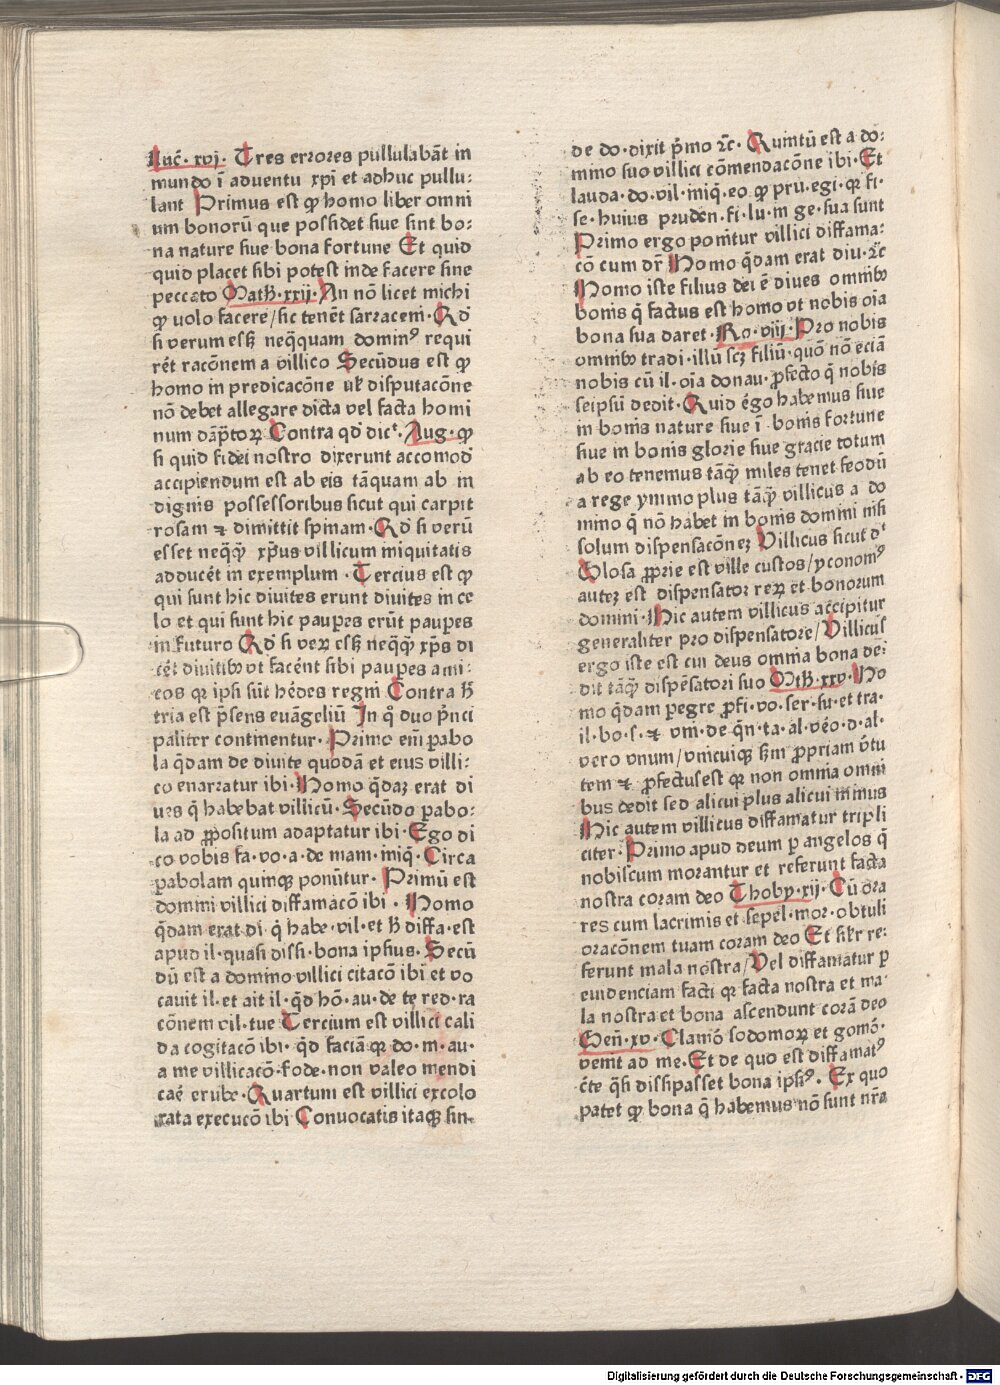 Luc̄· xvj· Tres errores pullulabāt in
mundo ī aduentu xp̄i et adhuc pullu⸗
lant Primus est ꝙ homo liber omni
um bonorū que possidet siue sint bo⸗
na nature siue bona fortune Et quid
quid placet sibi potest inde facere sine
peccato Math̄·xxij· An nō licet michi
ꝙ uolo facere/sic tenēt sarraceni·Qđ
si verum essꝫ neq̄quam dominꝰ requi
rēt racōnem a villico Secūdus est ꝙ
homo in predicacōne ul̄ disputacōne
nō debet allegare dicta vel facta homi
num dāp̄toꝝ Contra qđ dicᵗ· Aug·ꝙ
si quid fidei nostro dixerunt accomođ
accipiendum est ab eis tāquam ab in
dignis possessoribus sicut qui carpit
rosam ⁊ dimittit spinam·Qđ si verū
esset neq̄q̄ xp̄us villicum iniquitatis
adducēt in exemplum·Tercius est ꝙ
qui sunt hic diuites erunt diuites in ce
lo et qui sunt hic pauꝑes erūt pauꝑes
in futuro Qđ si veꝝ essꝫ neq̄q̄ xp̄s di
cēt diuitibꝰ vt facēnt sibi pauꝑes ami⸗
cos qꝛ ipsi sūt hēdes regni Contra h̄
tria est p̄sens euāgeliū In qͦ duo p̄nci
paliter continentur· Primo eni ꝑabo
la q̄dam de diuite quodā et eius villi⸗
co enarratur ibi·Homo q̄daꝫ erat di
ues q̄ habebat villicū·Secūdo ꝑabo⸗
la ad ꝓpositum adaptatur ibi·Ego di
co vobis fa·vo·a·de mam·iniq̄·Circa
ꝑabolam quinqꝫ ponūtur·Primū est
domini villici diffamacō ibi·Homo
q̄dam erat di·q̄ habe·vil·et h̄ diffa·est
apud il·quasi dissi·bona ipsius·Secū
dū est a domino villici citacō ibi et vo
cauit il·et ait il·q̄d hō·au·de te red·ra
cōnem vil·tue Tercium est villici cali
da cogitacō ibi·q̄d faciā qꝛ do·m·au·
a me villicacō·fode·non valeo mendi
caē erube·Quartum est villici excolo
rata execucō ibi Conuocatis itaqꝫ sin⸗
de·do·dixit p̄mo ⁊c̄·Quintū est a do⸗
mino suo villici cōmendacōne ibi·Et
lauda·do·vil·iniq̄·eo ꝙ pru·egi·qꝛ fi·
se·huius pruden·fi·lu·in ge·sua sunt
Primo ergo ponitur villici diffama⸗
cō cum dr̄ Homo q̄dam erat diu·⁊c̄
Homo iste filius dei ē diues omnibꝰ
bonis q̄ factus est homo vt nobis oīa
bona sua daret·Ro·viij·Pro nobis
omnibꝰ tradi·illū scꝫ filiū·quō nō eciā
nobis cū il·oīa donau·ꝓfecto q̄ nobis
seipsū dedit·Quid ergo habemus siue
in bonis nature siue ī bonis fortune
siue in bonis glorie siue gracie totum
ab eo tenemus tāq̄ miles tenet feodū
a rege ymmo plus tāq̄ villicus a do
mino q̄ nō habet in bonis domini nisi
solum dispensacōneꝫ Villicus sicut dᵗ
Glosa ꝓprie est ville custos/yconomꝰ
auteꝫ est dispensator reꝝ et bonorum
domini·Hic autem villicus accipitur
generaliter pro dispensatore/Villicus
ergo iste est cui deus omnia bona de⸗
dit tāq̄ dispēsatori suo Mth̄·xxv·Ho
mo q̄dam ꝑegre ꝓfi·vo·ser·su·et tra·
il·bo·s·⁊ vni·de q̄n·ta·al·vēo·d·al·
vero vnum/vnicuiqꝫ sm̄ ꝓpriam v̄tu
tem ⁊ ꝓfectusest qꝛ non omnia omni
bus dedit sed alicui plus alicui minus
Hic autem villicus diffamatur tripli
citer·Primo apud deum ꝑ angelos q̄
nobiscum morantur et referunt facta
nostra coram deo Thoby·xij·Cū ora
res cum lacrimis et sepel·mor·obtuli
oracōnem tuam coram deo Et sil̄r re⸗
ferunt mala nostra/Vel diffamatur ꝑ
euidenciam facti qꝛ facta nostra et ma⸗
la nostra et bona ascendunt corā deo
Gen̄·xv·Clamō sodomoꝝ et gomō·
venit ad me·Et de quo est diffamatꝰ
c̄te q̄si dissipasset bona ipsiꝰ·Ex quo
patet ꝙ bona q̄ habemus nō sunt nr̄a
Digitalisierung gefördert durch die Deutsche Forschungsgemeinschaft - DFG